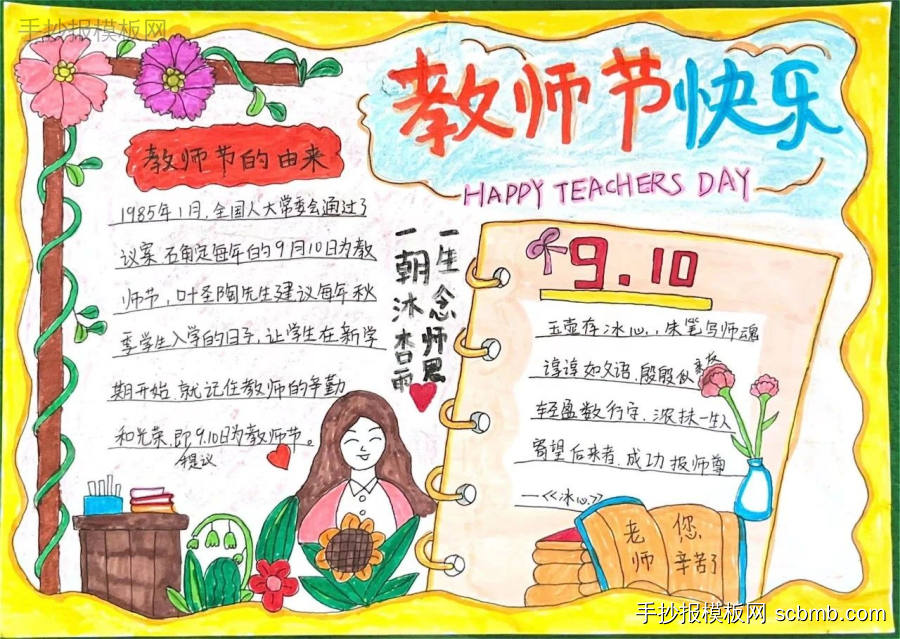 手抄报模板网
教师节快乐
HAPPY TEACHERS DAY
教师节的由来
1985年1月,全国人大常委会通过了
议案 确定每年的9月10日为教
师节,叶圣陶先生建议每年秋
季学生入学的日子,让学生在新学
期开始 就记住教师的辛勤
和光荣,即9.10日为教师节。
提议
一生念师恩
一朝沐杏雨
9.10
玉壶存冰心,朱笔写师魂
谆谆如父语,殷殷似亲友
轻盈数行字,浓抹一生人
寄望后来者,成功报师尊
—<<冰心>>
老师
您辛苦了
手抄报模板网 scbmb.com